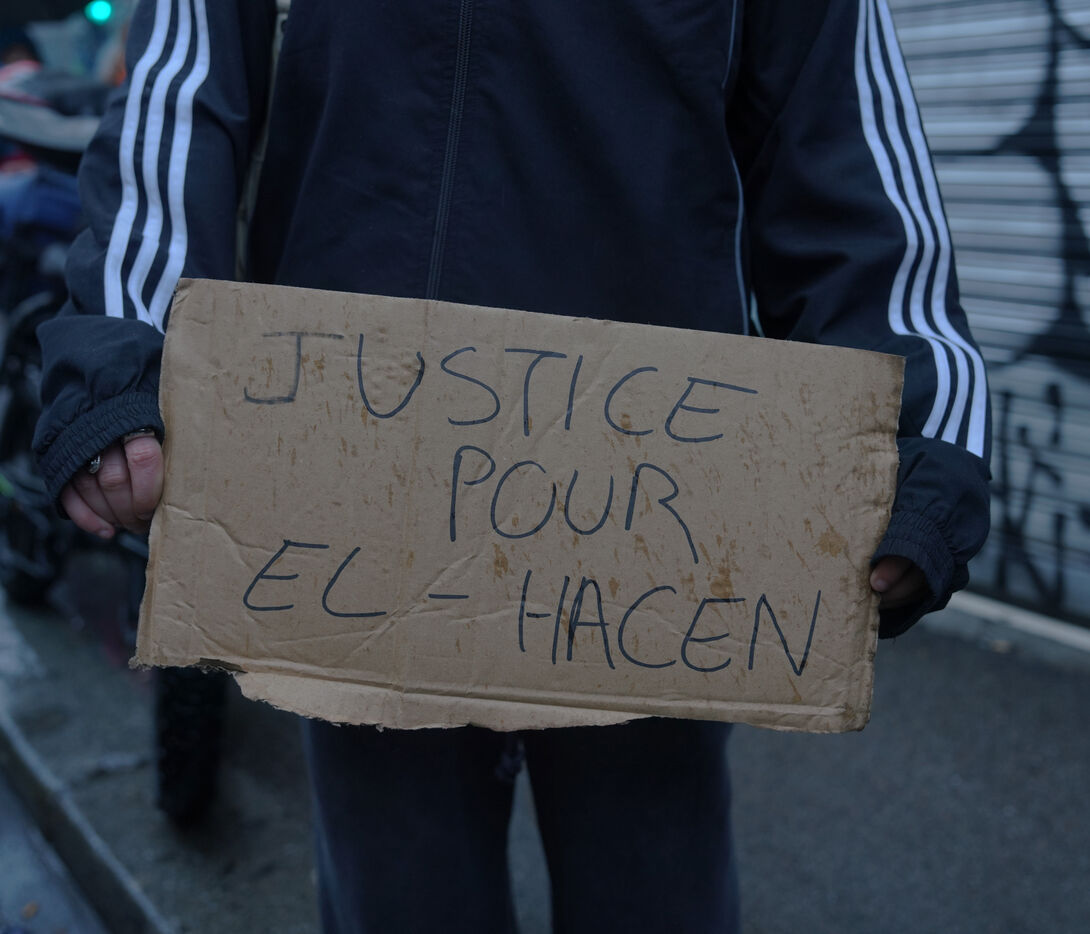 JUSTICE
POUR
EL-HACEN